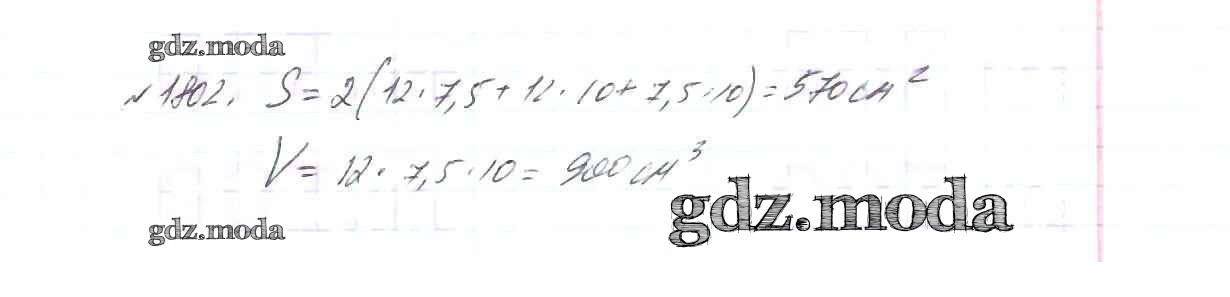 gdz.moda
№1802. S = 2(12·7,5+12·10+7,5·10) = 570см²
V = 12·7,5·10 = 900см³
gdz.moda
gdz.moda